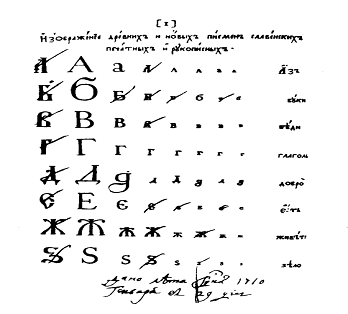 [1]
Изображенїе древнихъ и новыхъ писменъ славенскихъ
печатныхъ и рукописныхъ.
А А а а а а а а азъ
Б Б Б Б Б б б б буки
В В в в в в в в вѣди
Г Г г г г г г г глаголь
Д Д g д д д д д добро
Є Е є е е е е е есть
Ж Ж ж ж ж ж ж ж живѣте
Ѕ Ѕ ѕ ѕ ѕ ѕ ѕ ѕ зѣло
дано лѣта 1710
Генваря 29